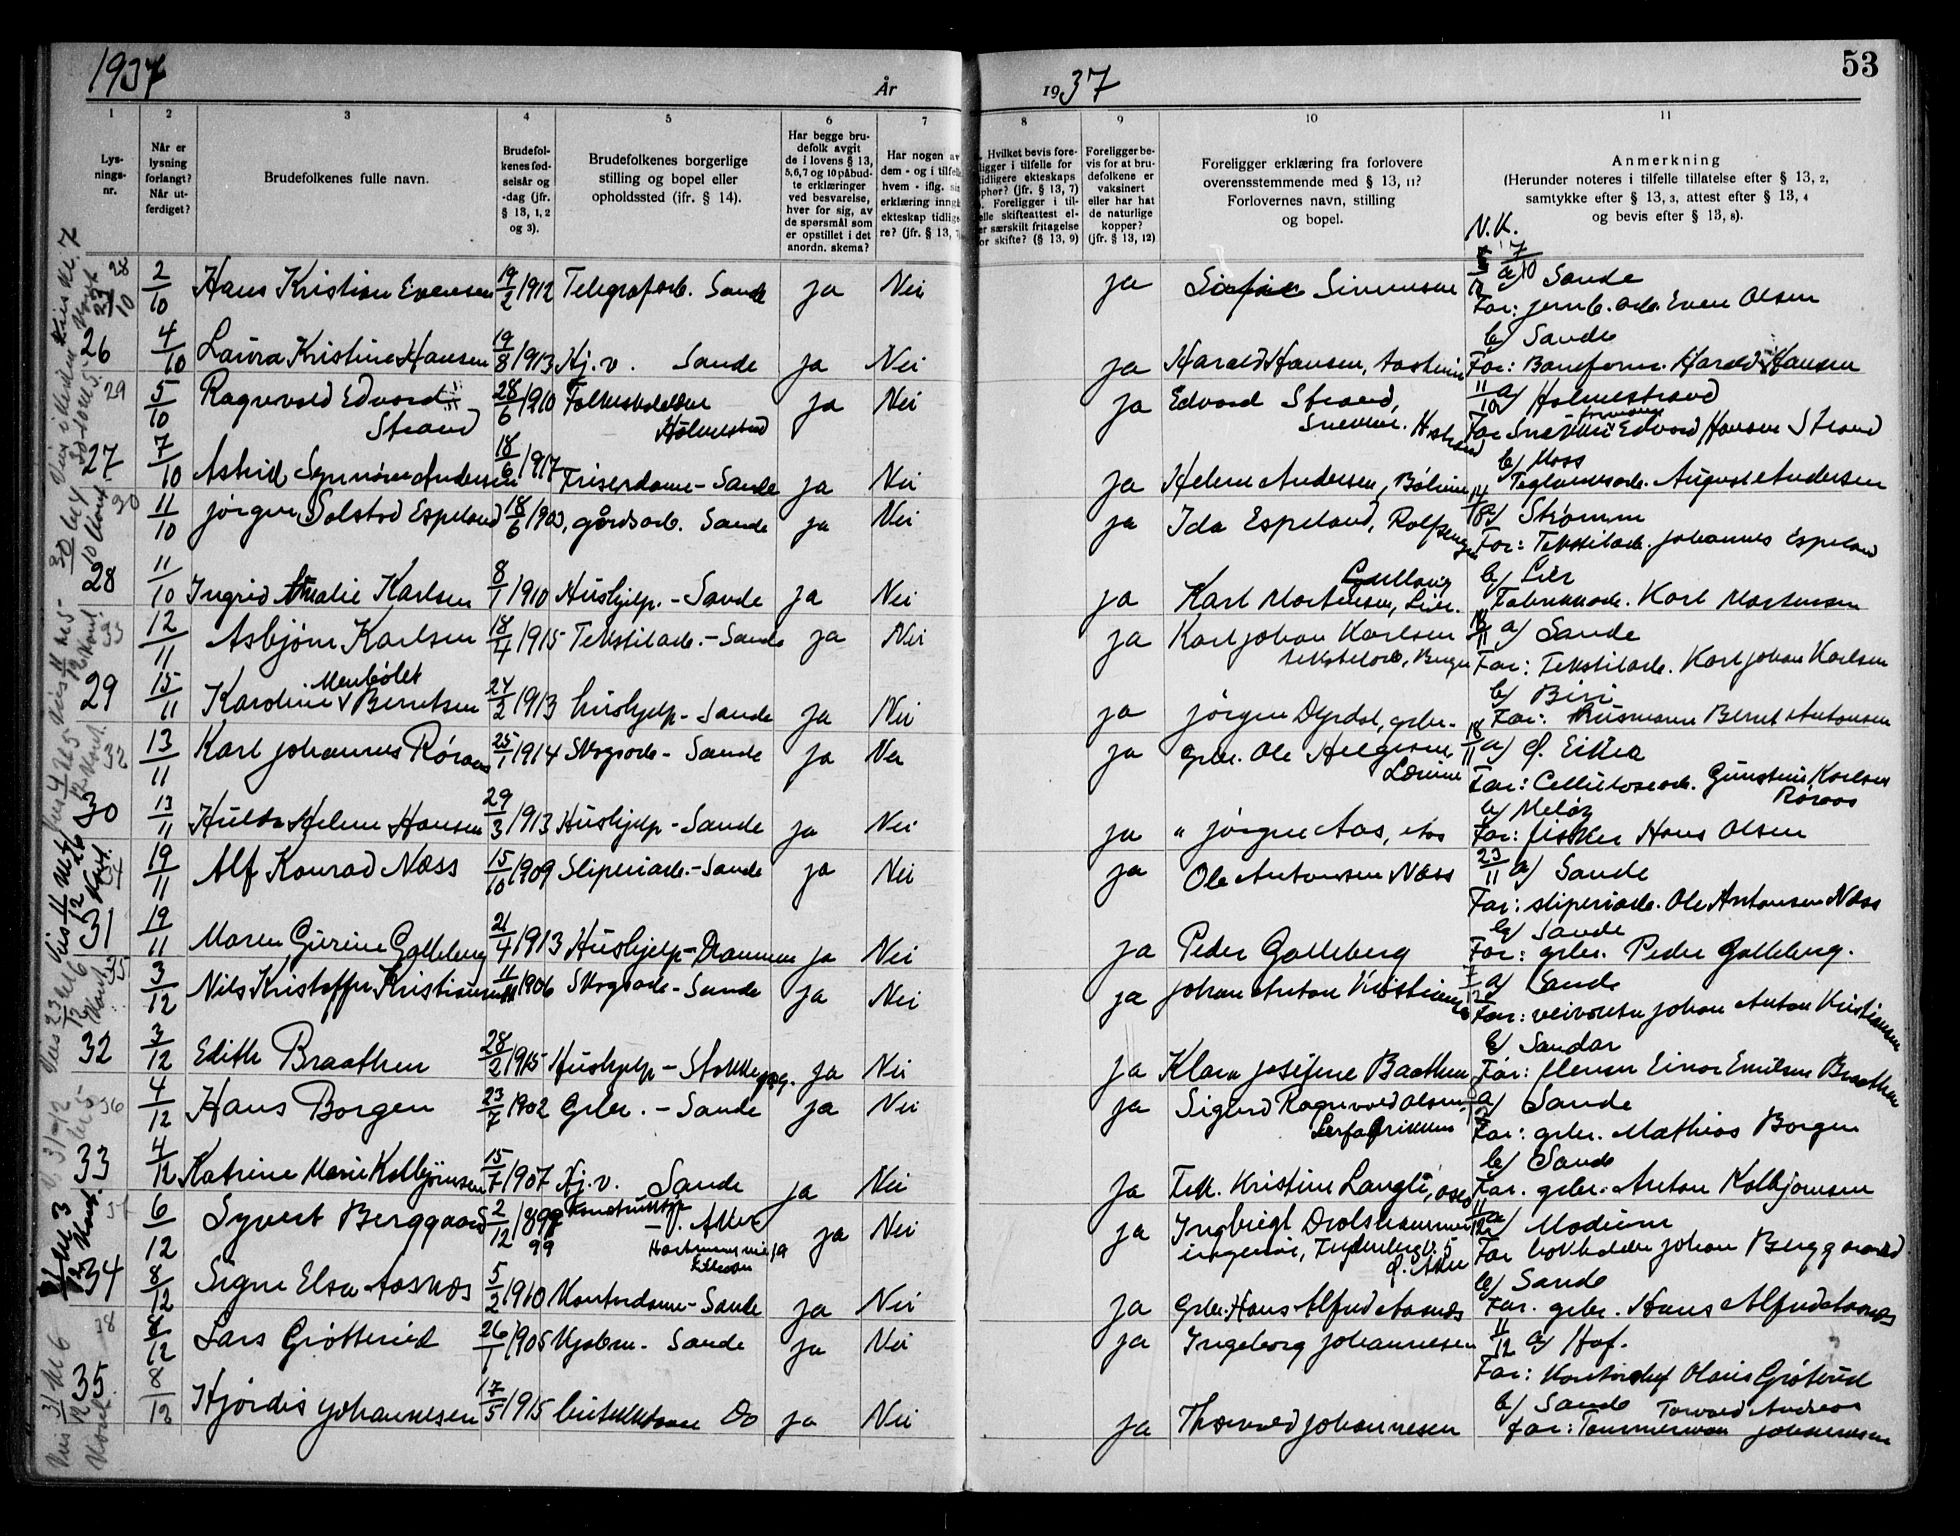 1937
År
1937
53
1
2
3
4
5
6
7
8
9
10
11
Lys-
nings-
nr.
Når er
lysning
forlangt?
Når ut-
ferdiget?
Brudefolkenes fulle navn.
Brudefol-
kenes fød-
selsår og
-dag (jfr.
§ 13, 1, 2
og 3).
Brudefolkenes borgerlige
stilling og bopel eller
opholdssted (ifr. § 14).
Har begge bru-
defolk avgit
de i lovens § 13,
5, 6, 7 og 10 påbud-
te erklæringer
ved besvarelse,
hver for sig, av
de spørsmål som
er opstillet i det
anordn. skema?
Har nogen av
dem - og i tilfelle
hvem - iflg. sin
erklæring inngå
ekteskap tidlige-
re? (jfr. § 13, 7
Hvilket bevis fore-
ligger i tilfelle for
tidligere ekteskaps
ophør? (jfr. § 13, 7)
Foreligger i til-
elle skifteattest el-
er særskilt fritagelse
or skifte? (§ 13, 9)
Foreligger be-
vis for at bru-
defolkene er
vaksinert
eller har hat
de naturlige
kopper?
(jfr. § 13, 12)
Foreligger erklæring fra forlovere
overensstemmende med § 13, 11?
Forlovernes navn, stilling
og bopel.
Anmerkning
(Herunder noteres i tilfelle tillatelse efter § 13, 2,
samtykke efter § 13, 3, attest efter § 13, 4
og bevis efter § 13, 8).
N.K.
28 2/10 Hans Kristian Evensen 19/2 1912 Telegrafarb. Sande ja Nei ja Simensen a) Sande
Far: jernb.arb. Even Olsen
b) Sande
26 4/10 Laura Kristine Hansen 19/8 1913 Hj.v. Sande ja Nei ja Harald Hansen, Far: Baneform. Harald Hansen
29 5/10 Ragnvald Edvard 28/6 1910 ja Nei ja Edvard Strand, 11/10 a) Holmestrand
Strand Holmestrand Snekker. H.strand Far Edvard Hansen Strand
b) Moss
27 7/10 Astrid Synnöve Andersen 18/6 1917 Friserdame - Sande ja Nei ja Helene Andersen, Teglverksarb. August Andersen
30 11/10 Jørgen Solstad Espeland 18/6 1903, gårdsarb. Sande ja Nei ja Ida Espeland, a) Strømm
Far: Tekstilarb. Johannes Espeland
Gullaug b) Lier
28 11/10 Ingrid Amalie Karlsen 8/1 1910 Hushjelp. - Sande ja Nei ja Karl Martinsen, Lier. Fabrikkarb. Karl Martinsen
33 12/11 Asbjørn Karlsen 18/4 1915 Tekstilarb. - Sande ja Nei ja Karl Johan Karlsen a) Sande
tekstilarb, Berger Far: Tekstilarb. Karl Johan Karlsen
b) Biri
29 15/11 Karoline Berntsen 24/2 1913 hushjelp - Sande ja Nei ja Jörgen Dyrdal, grbr. Far: Husmann Bernt Antonsen
32 13/11 Karl Johannes Røraas 25/1 1914 Skogsarb - Sande ja Nei ja grbr. Ole Helgesen 18/11 a) Ø. Eiker
Far: Cellulosearb. Gunstein Karlsen
Røraas
b) Meløy
30 13/11 Hulda Helene Hansen 29/3 1913 Hushjelp - Sande ja Nei ja " Jörgen Aas, Aas Far: fisker Hans Olsen
19/11 Alf Konrad Næss 15/10 1909 Sliperiarb. - Sande ja Nei ja Ole Antonsen Næss 23/11 a) Sande
Far: sliperiarb. Ole Antonsen Næss
b) Sande
31 19/11 Maren Gurine Galleberg 21/4 1913 Hushjelp - Drammen ja Nei ja Peder Galleberg Far: grbr. Peder Galleberg.
35 3/12 Nils Kristoffer Kristiansen 11/11 1906 Skogsarb - Sande ja Nei ja Johan Anton Kristiansen 7/12 a) Sande
Far: veivokter Johan Anton Kristiansen
b) Sandar
32 3/12 Edith Braathen 28/2 1915 Hushjelp - ja Nei ja Klara Josefine Baathen Far: Einar Emilsen Braathen
36 4/12 Hans Borgen 23/7 1902 Grbr. - Sande ja Nei ja Sigurd Ragnvald Olsen, a) Sande
Far: grbr. Mathias Borgen
b) Sande
33 4/12 Katrine Marie Kolbjørnsen 15/7 1907 Hj.v. Sande ja Nei ja Frk. Kristine Langli, Oslo Far. grbr. Anton Kolbjørnsen
6/12 Syvert Berggaard 2/12 1898 Ø. Aker ja Nei ja Ingbrigt 11/12 a) Modum
99 ingeniør, Far bokholder Johan Berggaard
b) Sande
34 8/12 Signe Elsa Aasnæs 5/2 1910 Kontordame - Sande ja Nei ja Grbr. Hans Alfred Aasnæs Far. grbr. Hans Alfred Aasnæs
38 8/12 Lars Grøtterud 26/1 1905 Kjøbm. Sande ja Nei ja Ingeborg Johannesen 11/12 a) Hof.
Far: Kontorchef Olaus Grøterud
b) Sande Torvald Andreas
35 8/12 Hjørdis Johannesen 17/5 1915 butikkdame Do ja Nei ja Thorvald Johannesen far: Tømmermann Johannesen